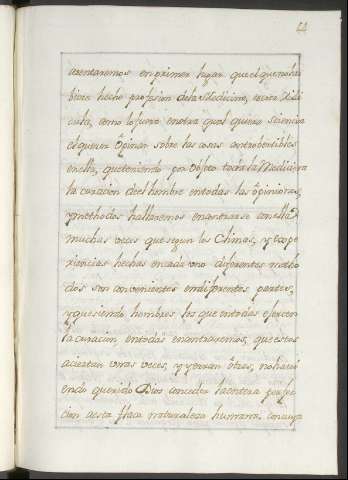 44
asentaremos en primer lugar que el que no hu
biere hecho profesion de la Medicina, es cosa
cula, como lo fuera en otra qual quiera sciencia
el querer Opinar sobre las cosas controbertibles
en ella, que teniendo por objeto toda la Medicina
la curacion del hombre en todas las opiniones,
y methodos hallaremos encontrarse con ella
muchas veces que segun los Climas, y espe
riencias hechas en cada uno diferentes metho
dos son convenientes en diferentes partes,
y que siendo hombres los que en todas ejercen
la curacion, en todas encontraremos, que estos
aciertan unas veces, y yerran otras, no havi
endo querido Dios conceder la entera perfec
cion a esta flaca naturaleza humana, con cuya